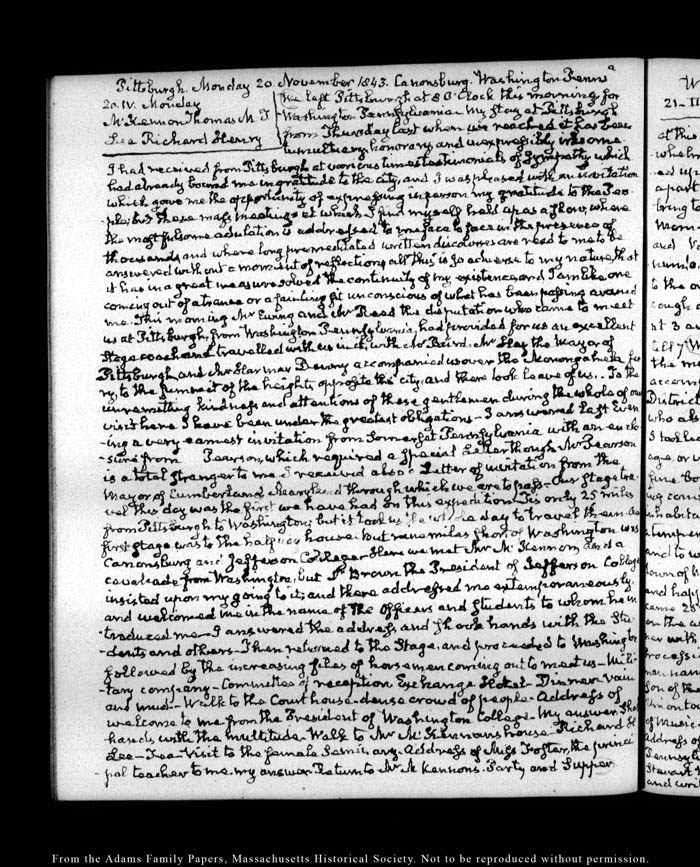 Pittsburgh. Monday 20. November 1843. Canonsburg. Washington Penna
20. IV. Monday
McKennon Thomas M. T
Lee Richard Henry
We left Pittsburgh at 8 O'Clock this morning for
Washington Pennsylvania. My stay at Pittsburgh
from Thursday last when we reached it has been
tumultuary, honorary, and inexpressibly irksome.
I had received from Pittsburgh at various times testimonials of sympathy which
had already bound me in gratitude to the city, and I was pleased with an invitation
which gave me the opportunity of expressing in person my gratitude to the Peo-
-ple; but these mass meetings at which I find myself held up as a show, where
the most fulsome adulation is addressed to me face to face in the presence of
thousands, and where long premeditated written discourses are read to me to be
answered without a moment of reflection, all this is so adverse to my nature, that
it has in a great measure solved the continuity of my existence, and I am like one
coming out of a trance or a fainting fit unconscious of what has been passing around
me. This morning Mr Ewing and Mr Reed the deputation who came to meet
us at Pittsburgh, from Washington Pennsylvania, had provided for us an excellent
Stage coach and travelled with us in it, with Mr Baird. Mr Hay the Mayor of
Pittsburgh and Mr Harmar Denny accompanied us over the Monongahela fer-
ry, to the summit of the heights opposite the city, and there took leave of us. To the
unremitting kindness and attentions of these gentlemen during the whole of our
visit here I have been under the greatest obligations. I answered last Even-
-ing a very earnest invitation from Somerset Pennsylvania with an enclo-
sure from Pearson, which required a special Letter though Mr Pearson
is a total stranger to me. I received also a Letter of invitation from the
Mayor of Cumberland Maryland through which we are to pass. Our stage tra-
vel this day was the first we have had on this expedition. Tis only 25 miles
from Pittsburgh to Washington; but it took us the whole day to travel them. Our
first stage was to the half way house. But nine miles short of Washington was
Canonsburg and Jefferson College. Here we met Mr McKennon and a
cavalcade from Washington, but Dr Brown the President of Jefferson College
insisted upon my going to it, and there addressed me extemporaneously
and welcomed me in the name of the Officers and Students to whom he in-
troduced me. I answered the address, and shook hands with the Stu-
-dents and others. Then returned to the Stage, and proceeded to Washington
followed by the increasing files of horsemen coming out to meet us— Mili-
-tary company— Committee of reception Exchange Hotel— Dinner— rain
and mud— Walk to the Court house— dense crowd of people. Address of
welcome to me from the President of Washington College. My answer. Shake
hands with the multitude. Walk to Mr McKennon's house. Richard H
Lee— Tea— Visit to the female Seminary. Address of Miss Foster, the princi
-pal teacher to me, my answer. Return to Mr McKennons. Party and Supper
From the Adams Family Papers, Massachusetts Historical Society. Not to be reproduced without permission.